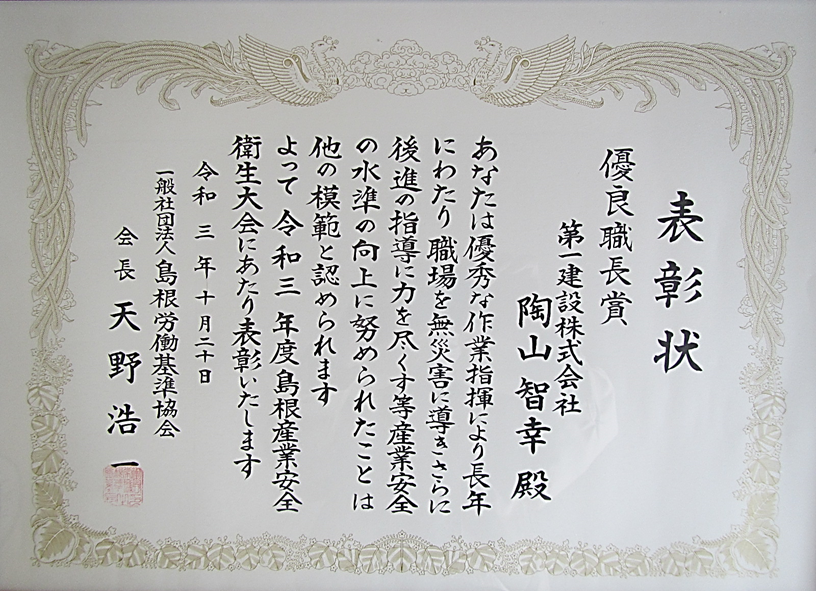 表彰状
優良職長賞
第一建設株式会社
陶山智幸殿
あなたは優秀な作業指揮により長年
にわたり職場を無災害に導きさらに
後進の指導に力を尽くす等産業安全
の水準の向上に努められたことは
他の模範と認められます
よって令和三年度島根産業安全
衛生大会にあたり表彰いたします
令和三年十月二十日
一般社団法人島根労働基準協会
会長天野浩一